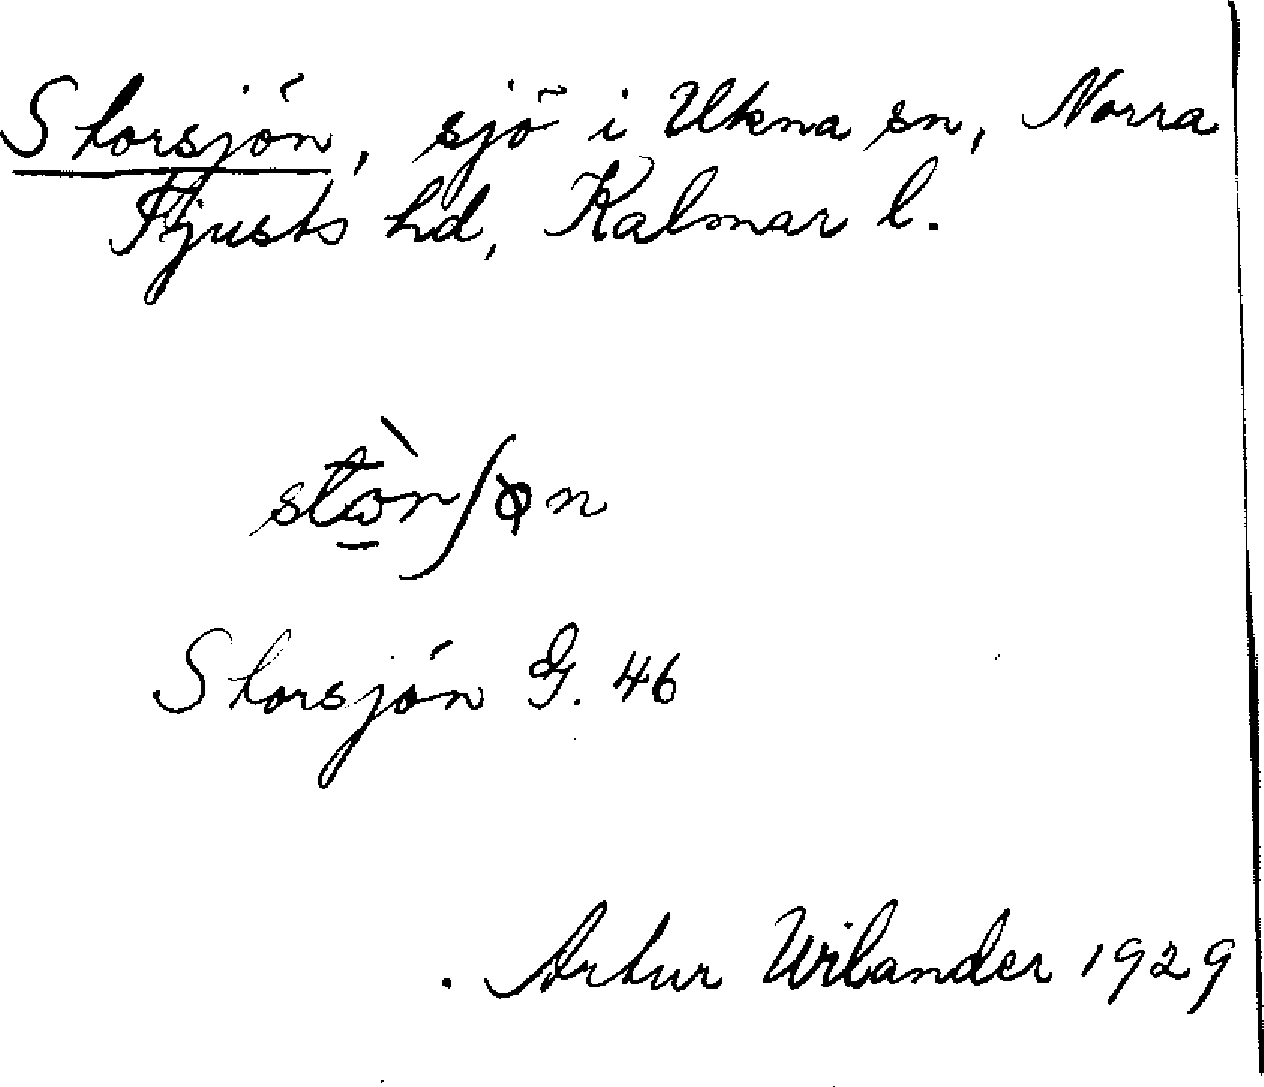 Storsjön, sjö i Ukna sn, Norra
Tjusts hd, Kalmar l.
stò̱rʃøn
Storsjön G. 46
Artur Wilander 1929